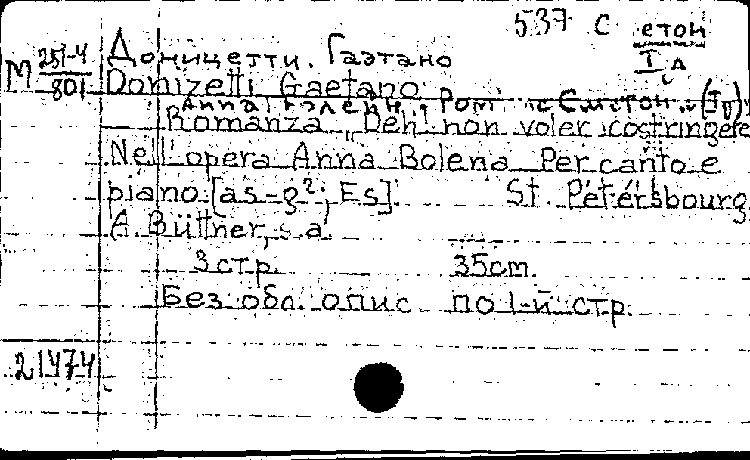 537 С етон
I д
М 251-4 Доницетти. Гаэтано
801 Donizetti Gaetano
Анна Ром Сметон
Romanza „Deh! non voler costringere
Nell'opera Anna Bolena Per canto e
piano. [as-g²; Es]. St. Pétersbourg,
A. Büttner, s.a.
3 стр. 35cm.
Без обл. опис по 1-й стр.
21474